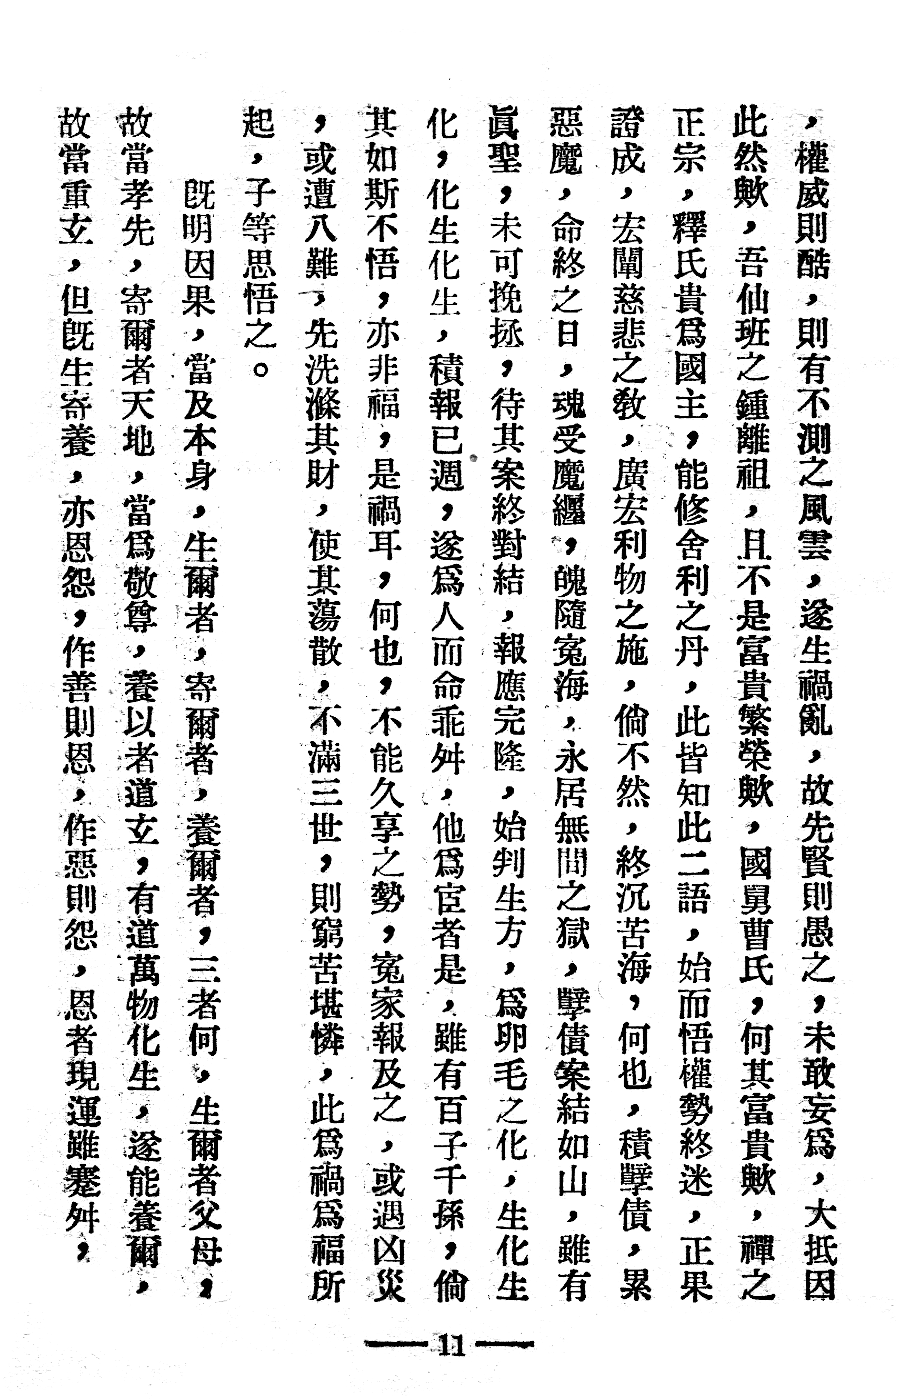 ，權威則酷，則有不測之風雲，遂生禍亂，故先賢則愚之，未敢妄爲，大抵因
此然歟，吾仙班之鍾離祖，且不是富貴繁榮歟，國舅曹氏，何其富貴歟，禪之
正宗，釋氏貴爲國主，能修舍利之丹，此皆知此二語，始而悟權勢終迷，正果
證成，宏闡慈悲之敎，廣宏利物之施，倘不然，終沉苦海，何也，積孽債，累
惡魔，命終之日，魂受魔纒，魄隨寃海，永居無間之獄，孽債案結如山，雖有
眞聖，未可挽拯，待其案終對結，報應完隆，始判生方，爲卵毛之化，生化生
化，化生化生，積報已週，遂爲人而命乖舛，他爲宦者是，雖有百子千孫，倘
其如斯不悟，亦非福，是禍耳，何也，不能久享之勢，寃家報及之，或遇凶災
，或遭八難，先洗滌其財，使其蕩散，不滿三世，則窮苦堪憐，此爲禍爲福所
起，子等思悟之。
旣明因果，當及本身，生爾者，寄爾者，養爾者，三者何，生爾者父母，
故當孝先，寄爾者天地，當爲敬尊，養以者道玄，有道萬物化生，遂能養爾，
故當重玄，但旣生寄養，亦恩怨，作善則恩，作惡則怨，恩者現運雖蹇舛，
11